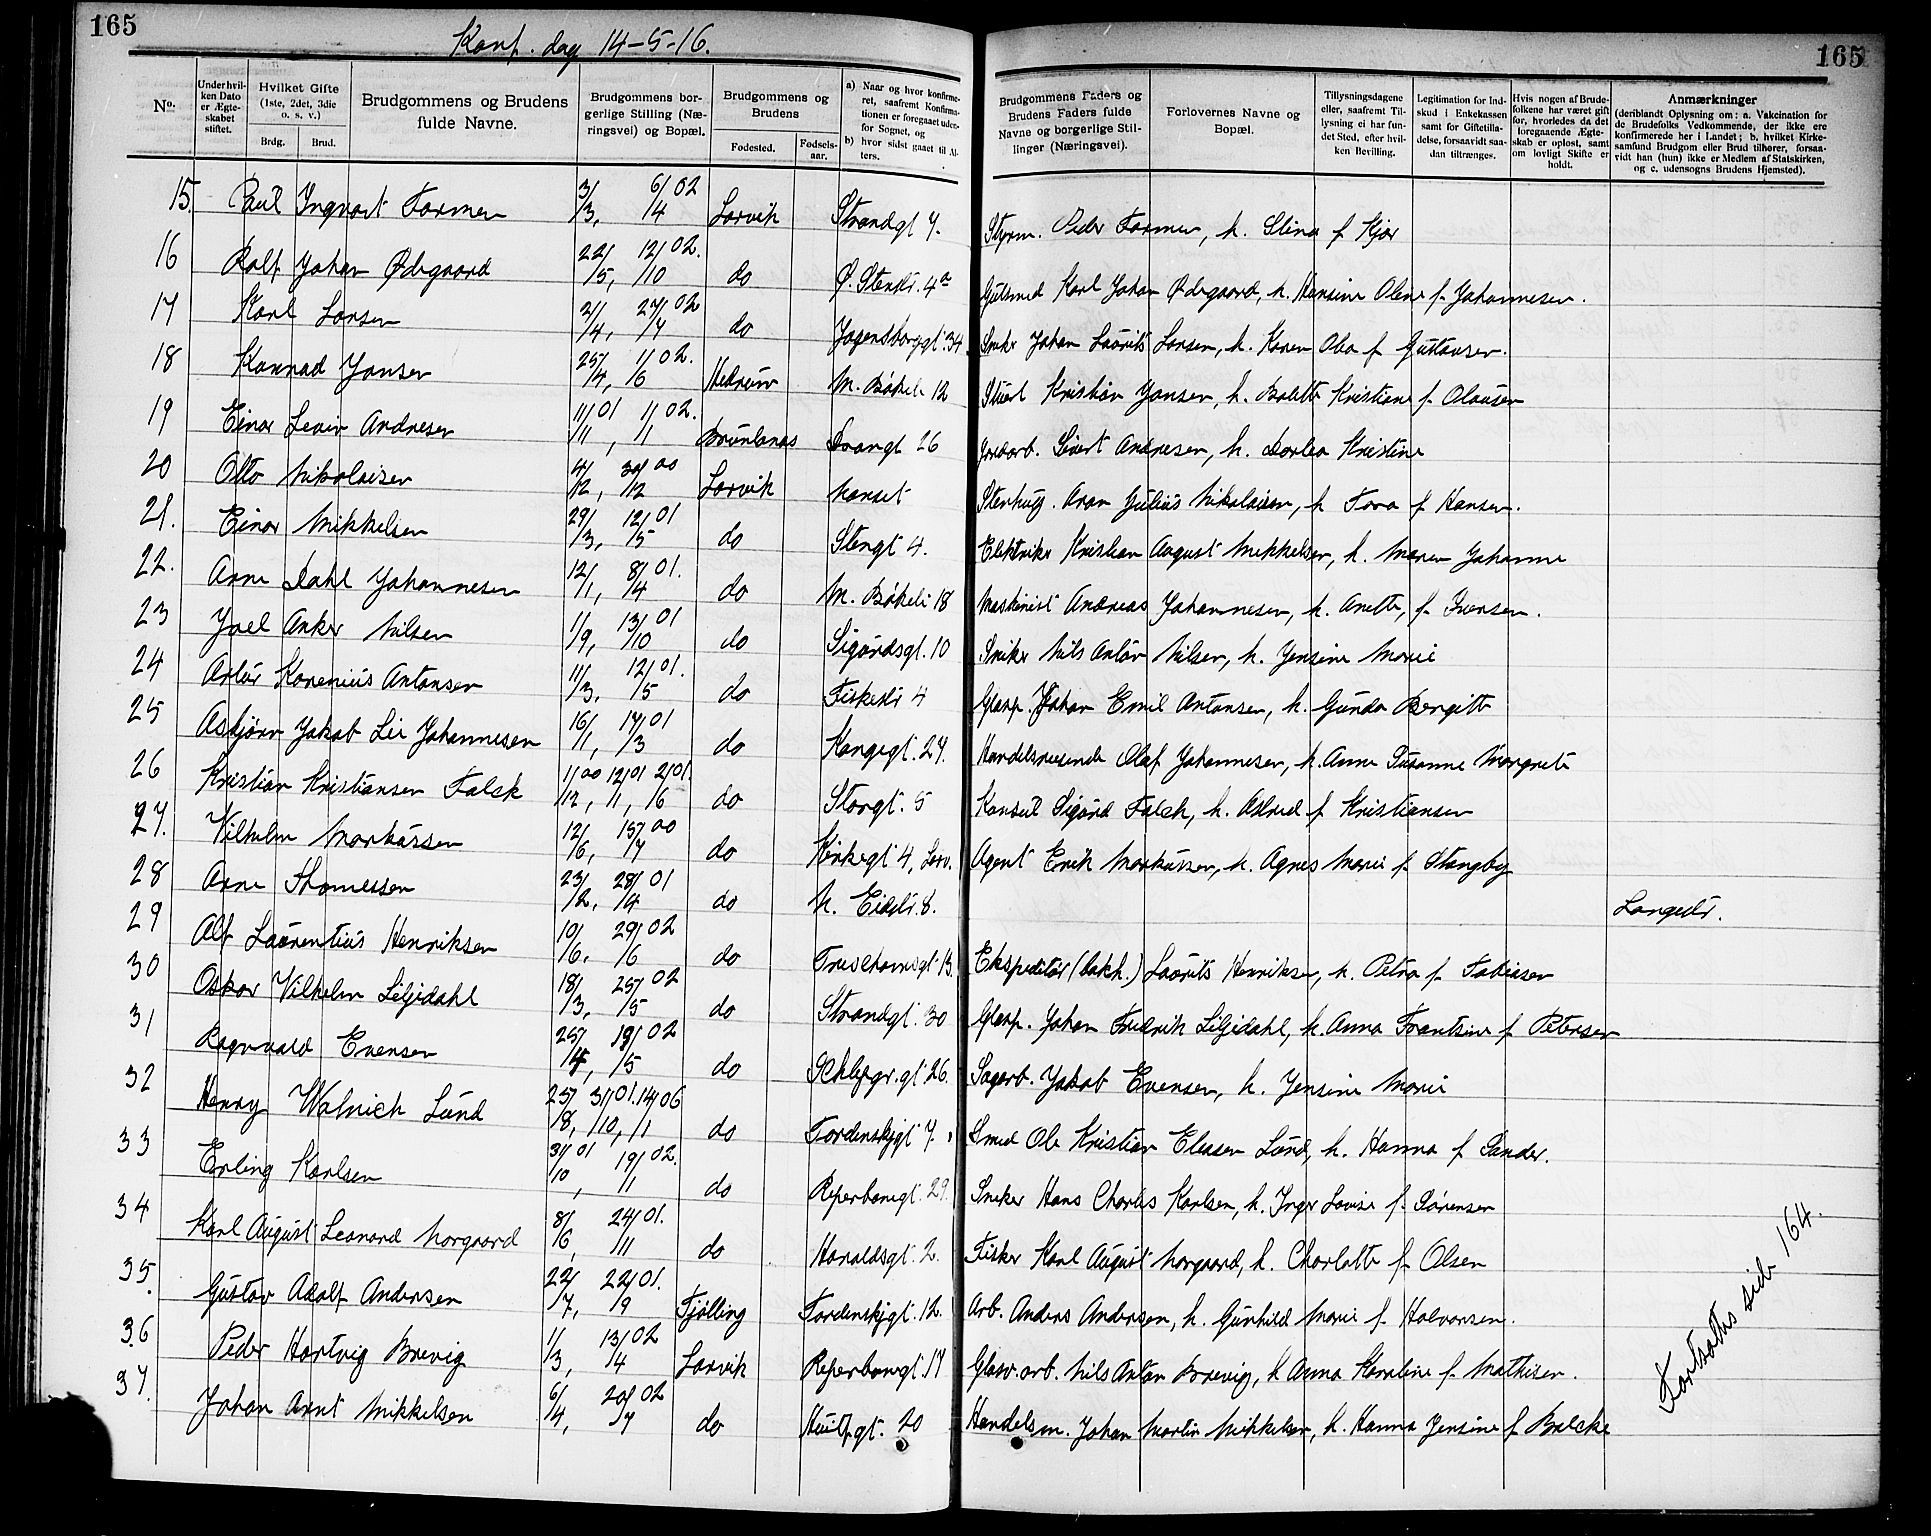 165
Konf. dag 14-5-16.
165
No.
Under hvilken Dato er Ægteskabet stiftet.
Hvilket Gifte (1ste, 2det, 3die o. s. v.)
Brdg. Brud.
Brudgommens og Brudens fulde Navne.
Brudgommens borgerlige Stilling (Næringsvei) og Bopæl.
Brudgommens og Brudens
Fødested. Fødselsaar.
a) Naar og hvor konfirmeret, saafremt Konfirmationen er foregaaet udenfor Sognet, og
b) hvor sidst gaaet til Alters.
Brudgommens Faders og Brudens Faders fulde Navne og borgerlige Stillinger (Næringsvei).
Forlovernes Navne og Bopæl.
Tillysningsdagene eller, saafremt Tillysning ei har fundet Sted, efter hvilken Bevilling.
Legitimation for Indskud i Enkekassen samt for Giftetilladelse, forsaavidt saadan tiltrænges.
Hvis nogen af Brudefolkene har været gift før, hvorledes da det foregaaende Ægteskab er opløst, samt om lovligt Skifte er holdt.
Anmærkninger
(deriblandt Oplysning om: a. Vakcination for de Brudefolks Vedkommende, der ikke ere konfirmerede her i Landet; b. hvilket Kirkesamfund Brudgom eller Brud tilhører, forsaavidt han (hun) ikke er Medlem af Statskirken, og c. udensogns Brudens Hjemsted).
15. Paul Ingvart Farmen 3/3, 6/4 02 Larvik Strandgt 7. Styrm. Peder Farmen, h. Stina f Kjær
16 Rolf Johan Ødegaard 22/5, 12/10 02. do Ø. Stenstr. 4a Gulsmed Karl Johan Ødegaard, h. Hansine Oline f. Johannesen.
17 Karl Larsen 2/4, 27/7 02 do Jegersborggt. 34 Sniker Johan Laurits Larsen, h. Karen Oba f Gustavsen.
18 Konrad Jansen 25/4, 1/6 02. Hedrum M. Bøkeli 12 Stuert Kristian Jansen, h. Bolette Kristiane f. Olausen
19 Einar Levin Andresen 11/11 01, 1/1 02. Brunlanes Dronngt 26 Jordarb. Sivert Andresen, h. Dorlea Kristine
20 Otto Nikolaisen 4/2, 30/12 00 Larvik Nanset Stenhug. Aron Julius Nikolaisen, h Tora f Hansen.
21. Einar Mikkelsen 29/3, 12/5 01 do Stengt 4. Elektriker Kristian August Mikkelsen, h. Maren Johanne
22. Arne Dahl Johannesen 12/1, 8/4 01. do M. Bøkeli 18 Maskinist Andreas Johannesen, h. Anette, f. Iversen.
23 Joel Anker Nilsen 1/9, 13/10 01 do Sigurdsgt. 10 Sniker Nils Anton Nilsen, h. Jensine Marie
24 Artur Karenius Antonsen 11/3, 12/5 01. do Fiskestr 4 Glasp. Johan Emil Antonsen, h. Gunda Bergitte
25 Asbjørn Jakob Lie Johannesen 16/1, 17/3 01 do Kongegt. 27. Handelsreisende Olaf Johannesen, h. Anne Susanne Margrete
26 Kristian Kristiansen Falck 1/12 00, 12/11 01, 2/6 01. do Storgt. 5 Konsul Sigurd Falck, h. Astrid f Kristiansen
27. Vilhelm Markussen 12/6, 15/7 00 do Kirkegt 4, Larv. Agent Erik Markussen, h. Agnes Marie f. Stangeby
28 Arne Thomessen 23/2, 28/4 01 do N. Eidstr. 8. Langestr.
29 Alf Laurentius Henriksen 19/6, 29/6 02 do Treschowsgt 13. Ekspeditør (bakh.) Laurits Henriksen, h. Petra f. Tobiasen
30 Oskar Vilhelm Liljedahl 18/3, 25/5 02 do Strandgt. 30 Glasp. Johan Fredrik Liljedahl, h. Anna Frantsine f. Petersen
31 Ragnvald Evensen 25/4, 19/5 02 do Schlepgr.gt 26. Sagarb. Jakob Evensen, h. Jensine Marie
32 Henry Wolnick Lund 25/18, 31/10 01. 14/1 06 do Tordenskjgt 7. Smed Ole Kristian Eliasen Lund, h. Hanna f Sander.
33 Erling Karlsen 31/10 01, 19/11 02. do Reperbanegt. 29. Sniker Hans Charles Karlsen, h. Inger Louise f. Sørensen
34 Karl August Leonard Norgaard 8/6, 24/11 01. do Haraldsgt. 2. Fisker Karl August Norgaard, h. Charlotte f. Olsen
35. Gustav Adolf Andersen 22/7, 22/9 01. Fjølling Tordenskjgt. 12. Arb. Anders Andersen, h. Gunhild Marie f. Halvorsen.
36 Peder Hartvig Brevig 1/3, 13/4 02 Larvik Reperbanegt. 17 Glasv. arb. Nils Anton Brevig, h Anna Karoline f. Mathisen.
37. Johan Arnt Mikkelsen 6/4, 20/7 02 do Huitfgt. 20 Handelsm. Johan Martin Mikkelsen, h. Hanna Jensine f Balcke
Fortsættes side 164.